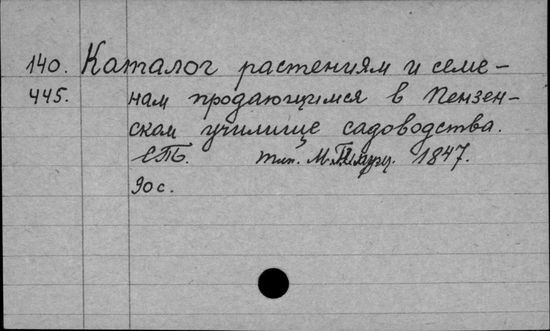 140. Каталог растениям и семе-
445. нам продающимся в Пензен-
ском училище садоводства.
СПБ. тип. М. 1847.
90 с.